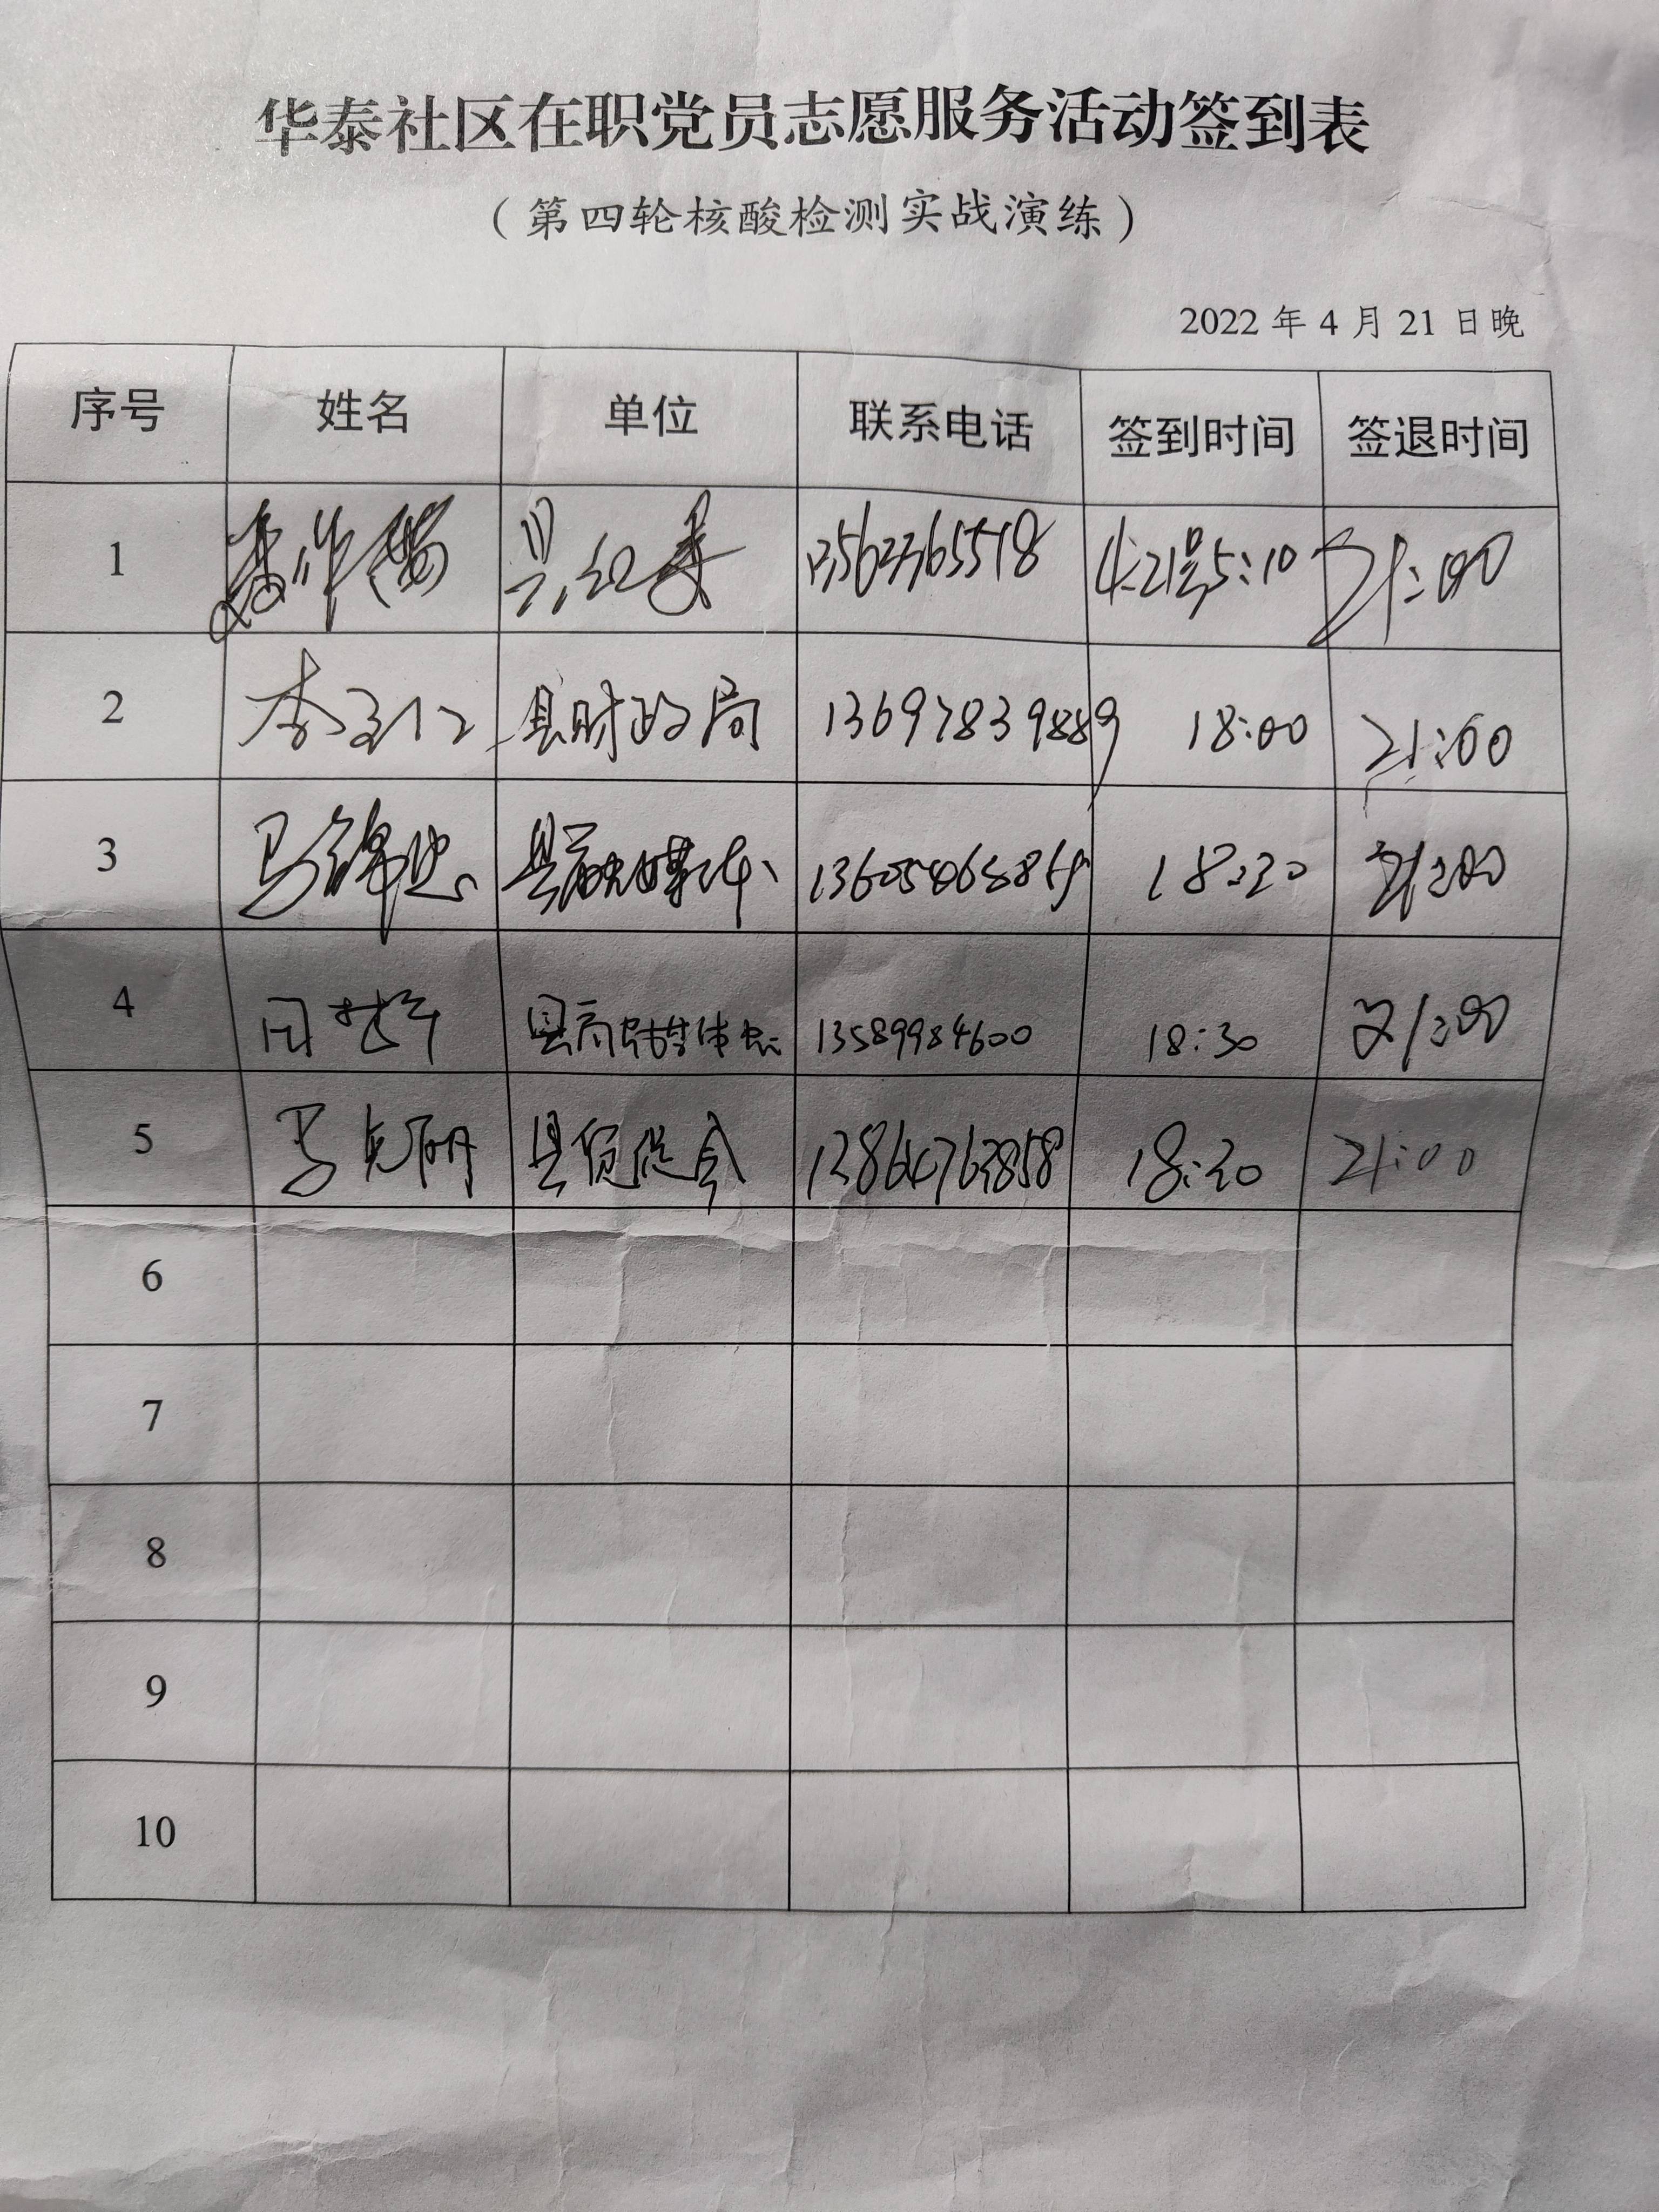 华泰社区在职党员志愿服务活动签到表
（第四轮核酸检测实战演练）
2022 年 4 月 21 日晚
序号 姓名 单位 联系电话 签到时间 签退时间
1 县纪委 4.21号5:10 21:00
2 李 县财政局 13697839889 18:00 21:00
3 马锦忠 县融媒体 18:30 21:00
4 县融媒体中心 13589984600 18:30 21:00
5 马克明 县贸促会 13864763858 18:30 21:00
6
7
8
9
10